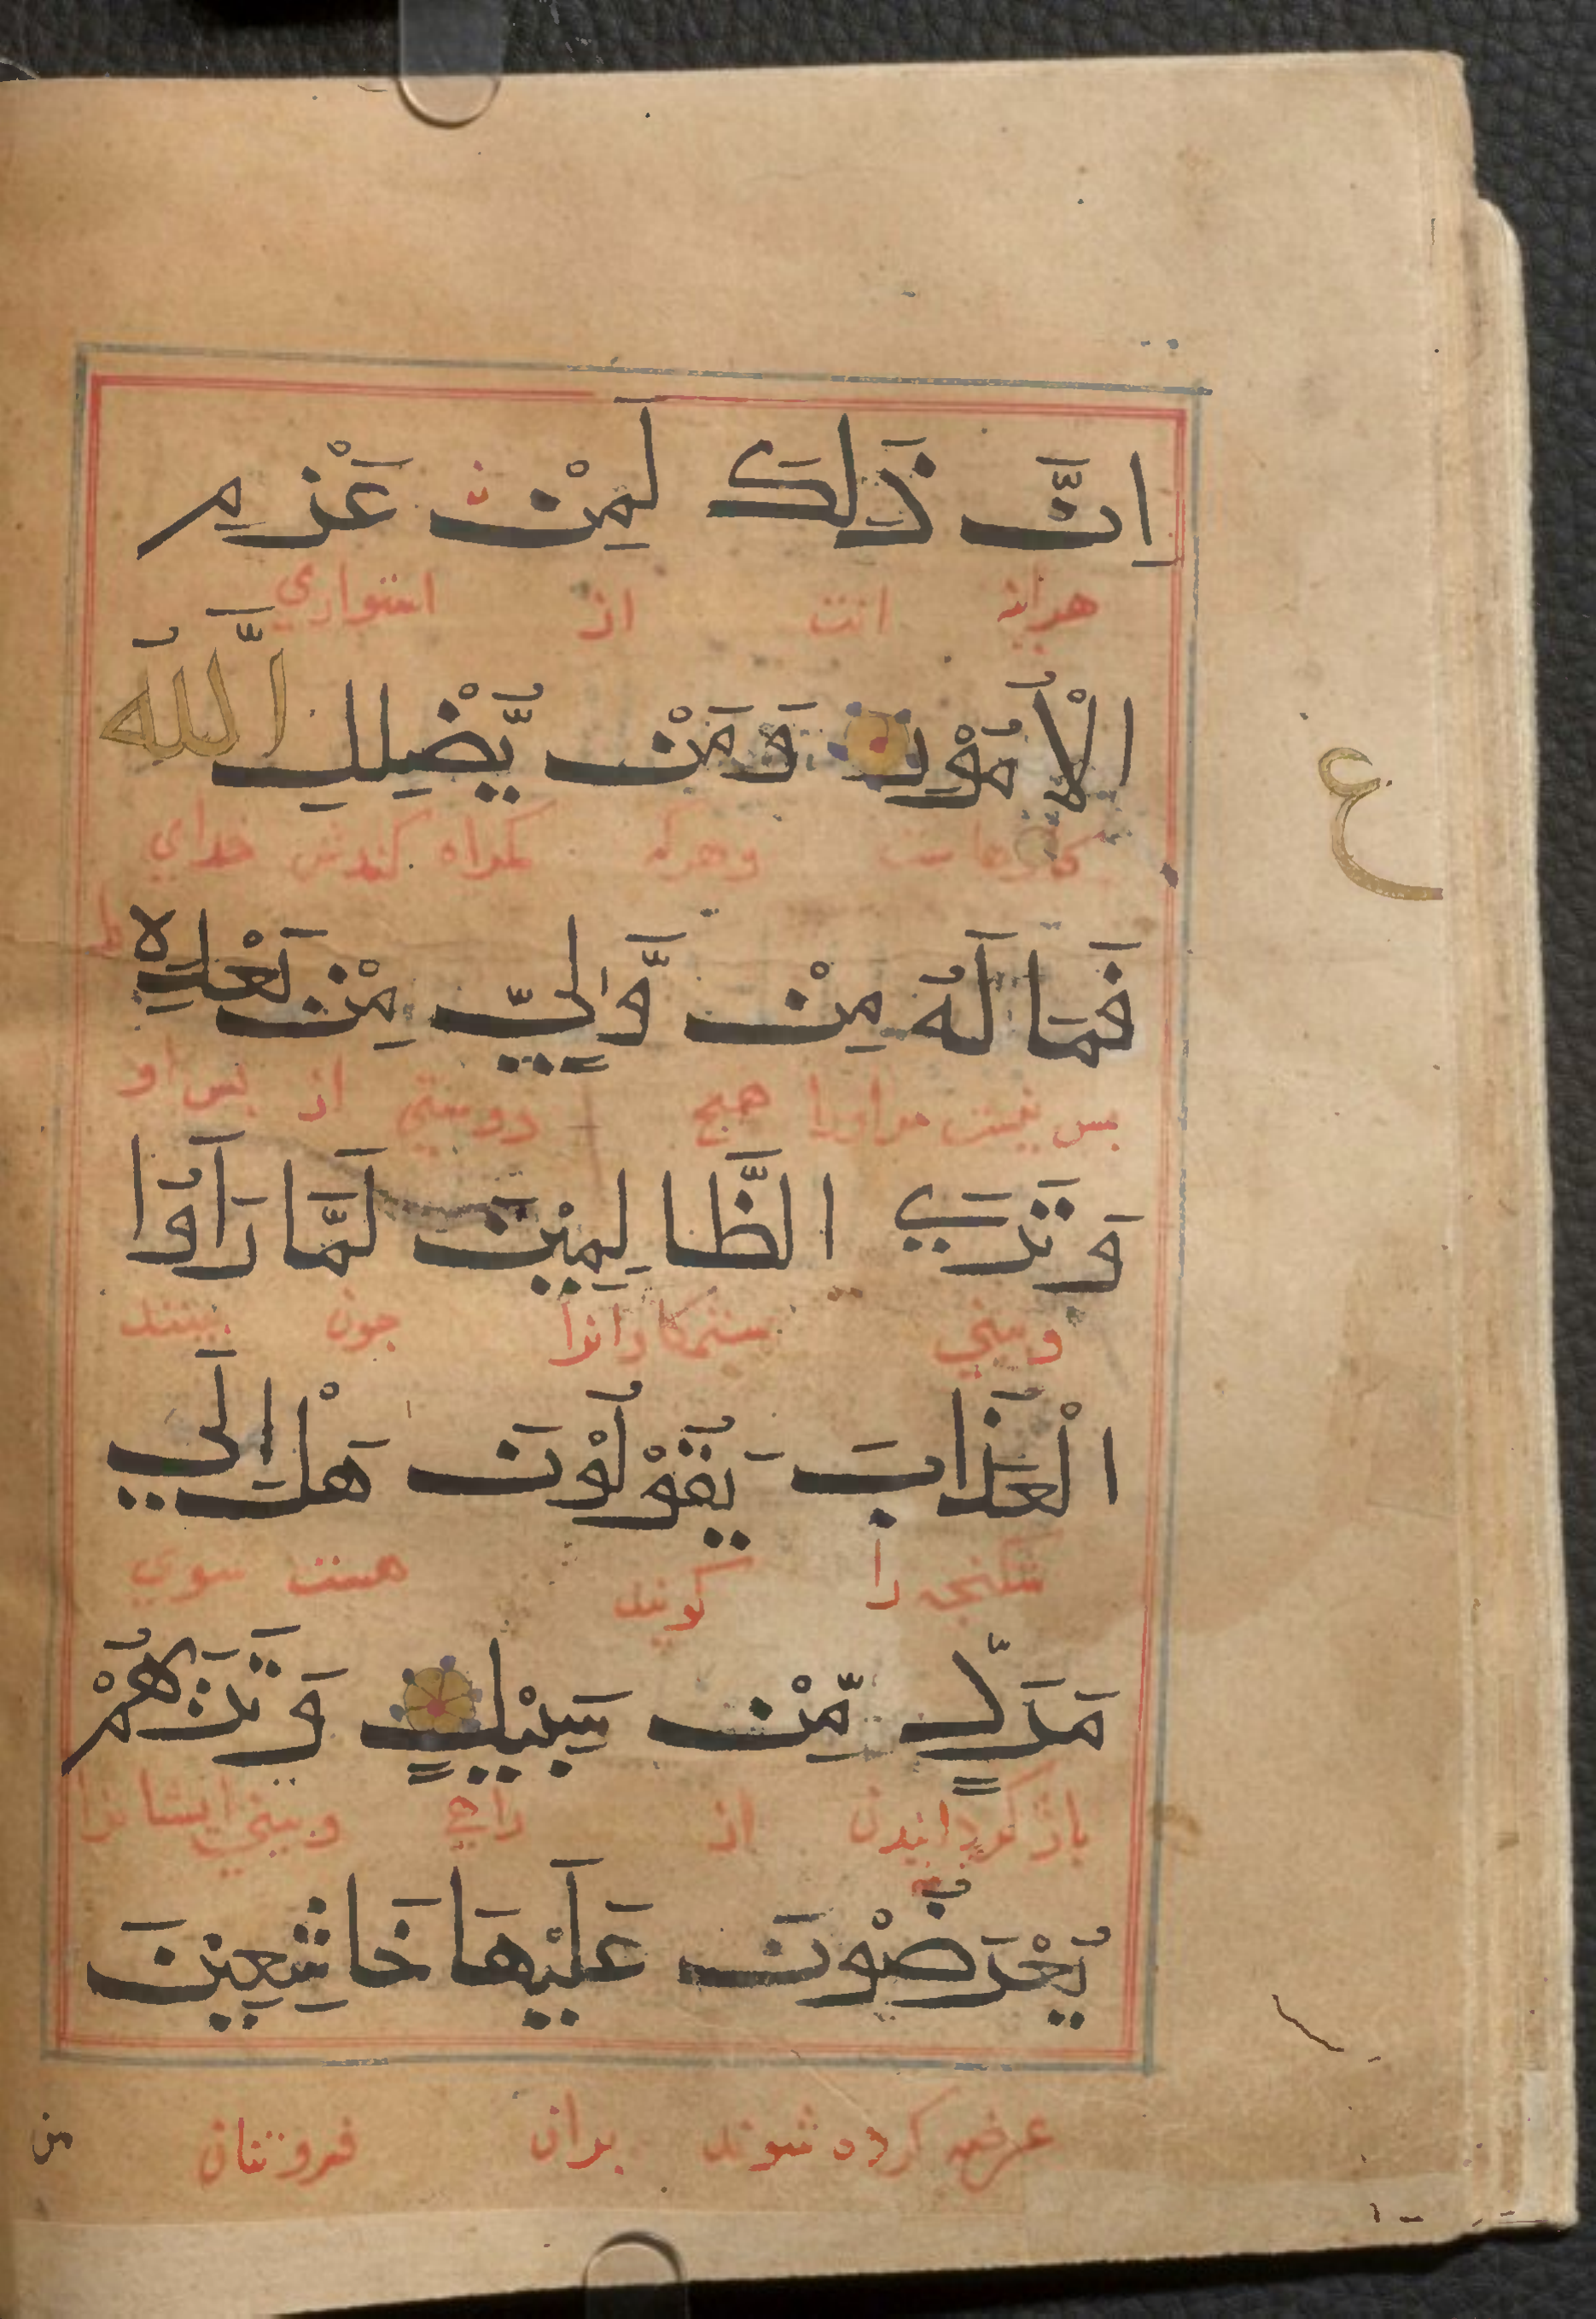 اِنَّ ذَلِكَ لَمِنْ عَزْمِ
هراینه انست از استواري
الْاُمُوْرِ وَمَنْ يُّضْلِلِ اللّٰهُ
كارهاست وهركه كمراه كندش خداي
ع
فَمَا لَهُ مِنْ وَّلِيٍّ مِنْ بَعْدِهِ ط
بس نیست مراورا هيج دوستي از بس او
وَتَرَي الظَّالِمِيْنَ لَمَّا رَاَوُا
وبيني ستمكارانرا جون بينند
الْعَذَابَ يَقُوْلُوْنَ هَلْ اِلَي
شكنجه را كويند هست سوي
مَرَدٍّ مِّنْ سَبِيْلٍ وَتَرٰىهُمْ
باز كردانيدن از راهي وبيني ايشانرا
يُعْرَضُوْنَ عَلَيْهَا خَاشِعِيْنَ
عرض كرده شوند بران فروتنان
من